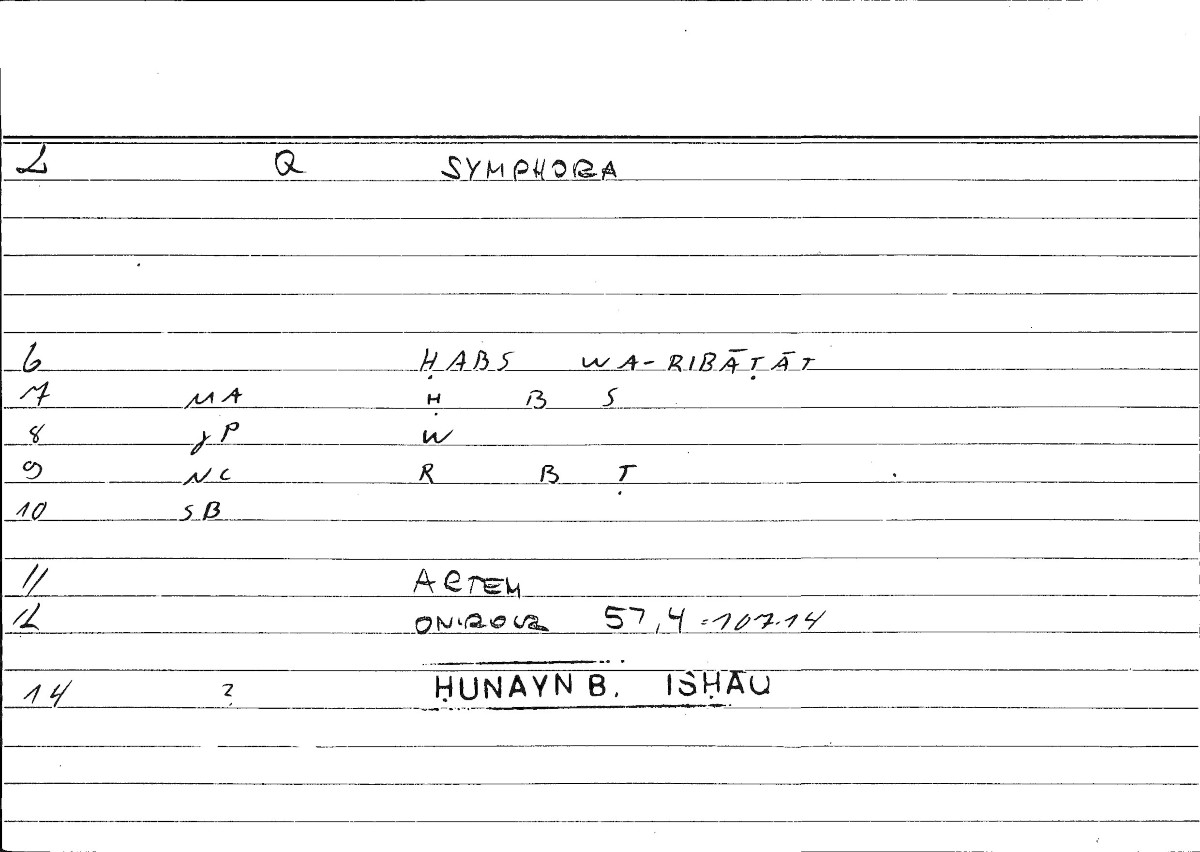 2 Q SYMPHORA
6 ḤABS WA-RIBĀṬĀT
7 MA Ḥ B S
8 γP W
9 NC R B Ṭ
10 SB
11 ARTEM
12 ONIROCR 57,4 = 107.14
14 ? ḤUNAYN B. ISḤĀQ